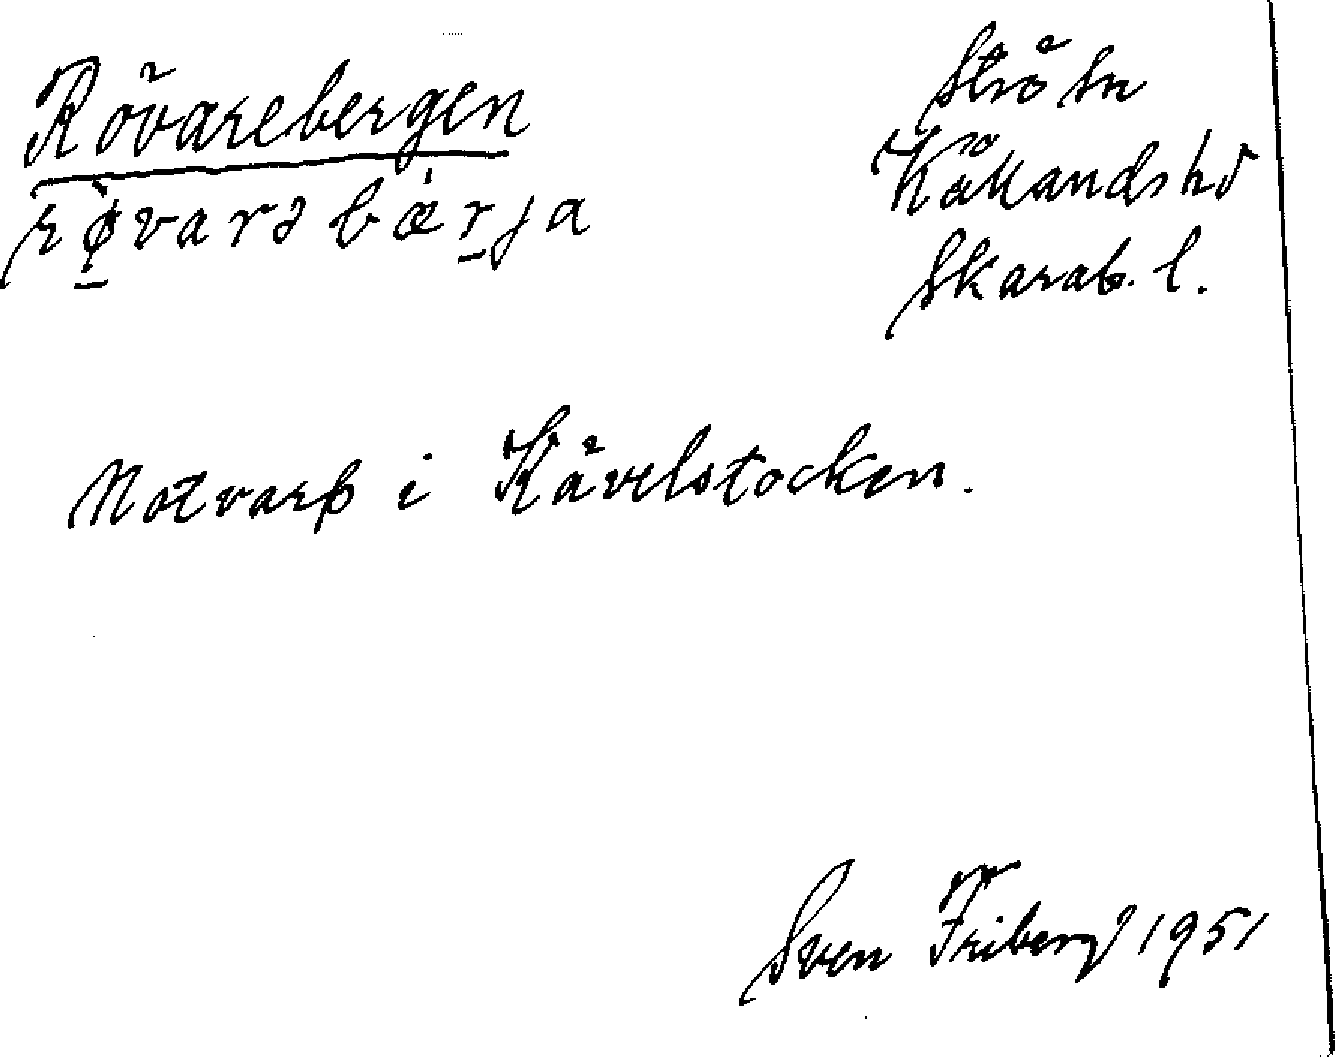 Rövarebergen
rø̀varəbǽrja
Strö sn
Kållands hd
Skarab. l.
Notvarp i Kävelstocken.
Sven Friberg 1951